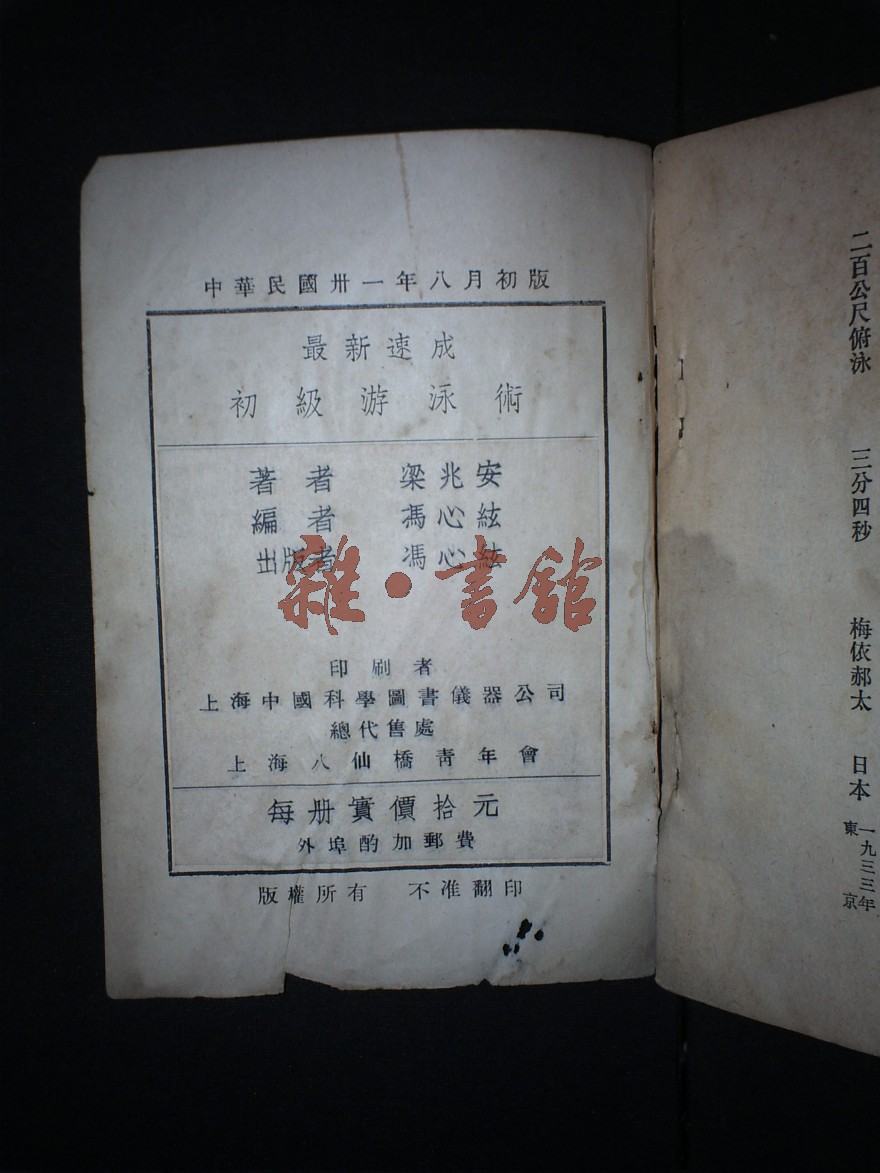 中華民國卅一年八月初版
最新速成
初級游泳術
著者 梁兆安
編者 馮心絃
出版者 馮心絃
雜·書舘
印刷者
上海中國科學圖書儀器公司
總代售處
上海八仙橋靑年會
每册實價拾元
外埠酌加郵費
版權所有 不准翻印
二百公尺俯泳 三分四秒 梅依郝太 日本 一九三三年東京